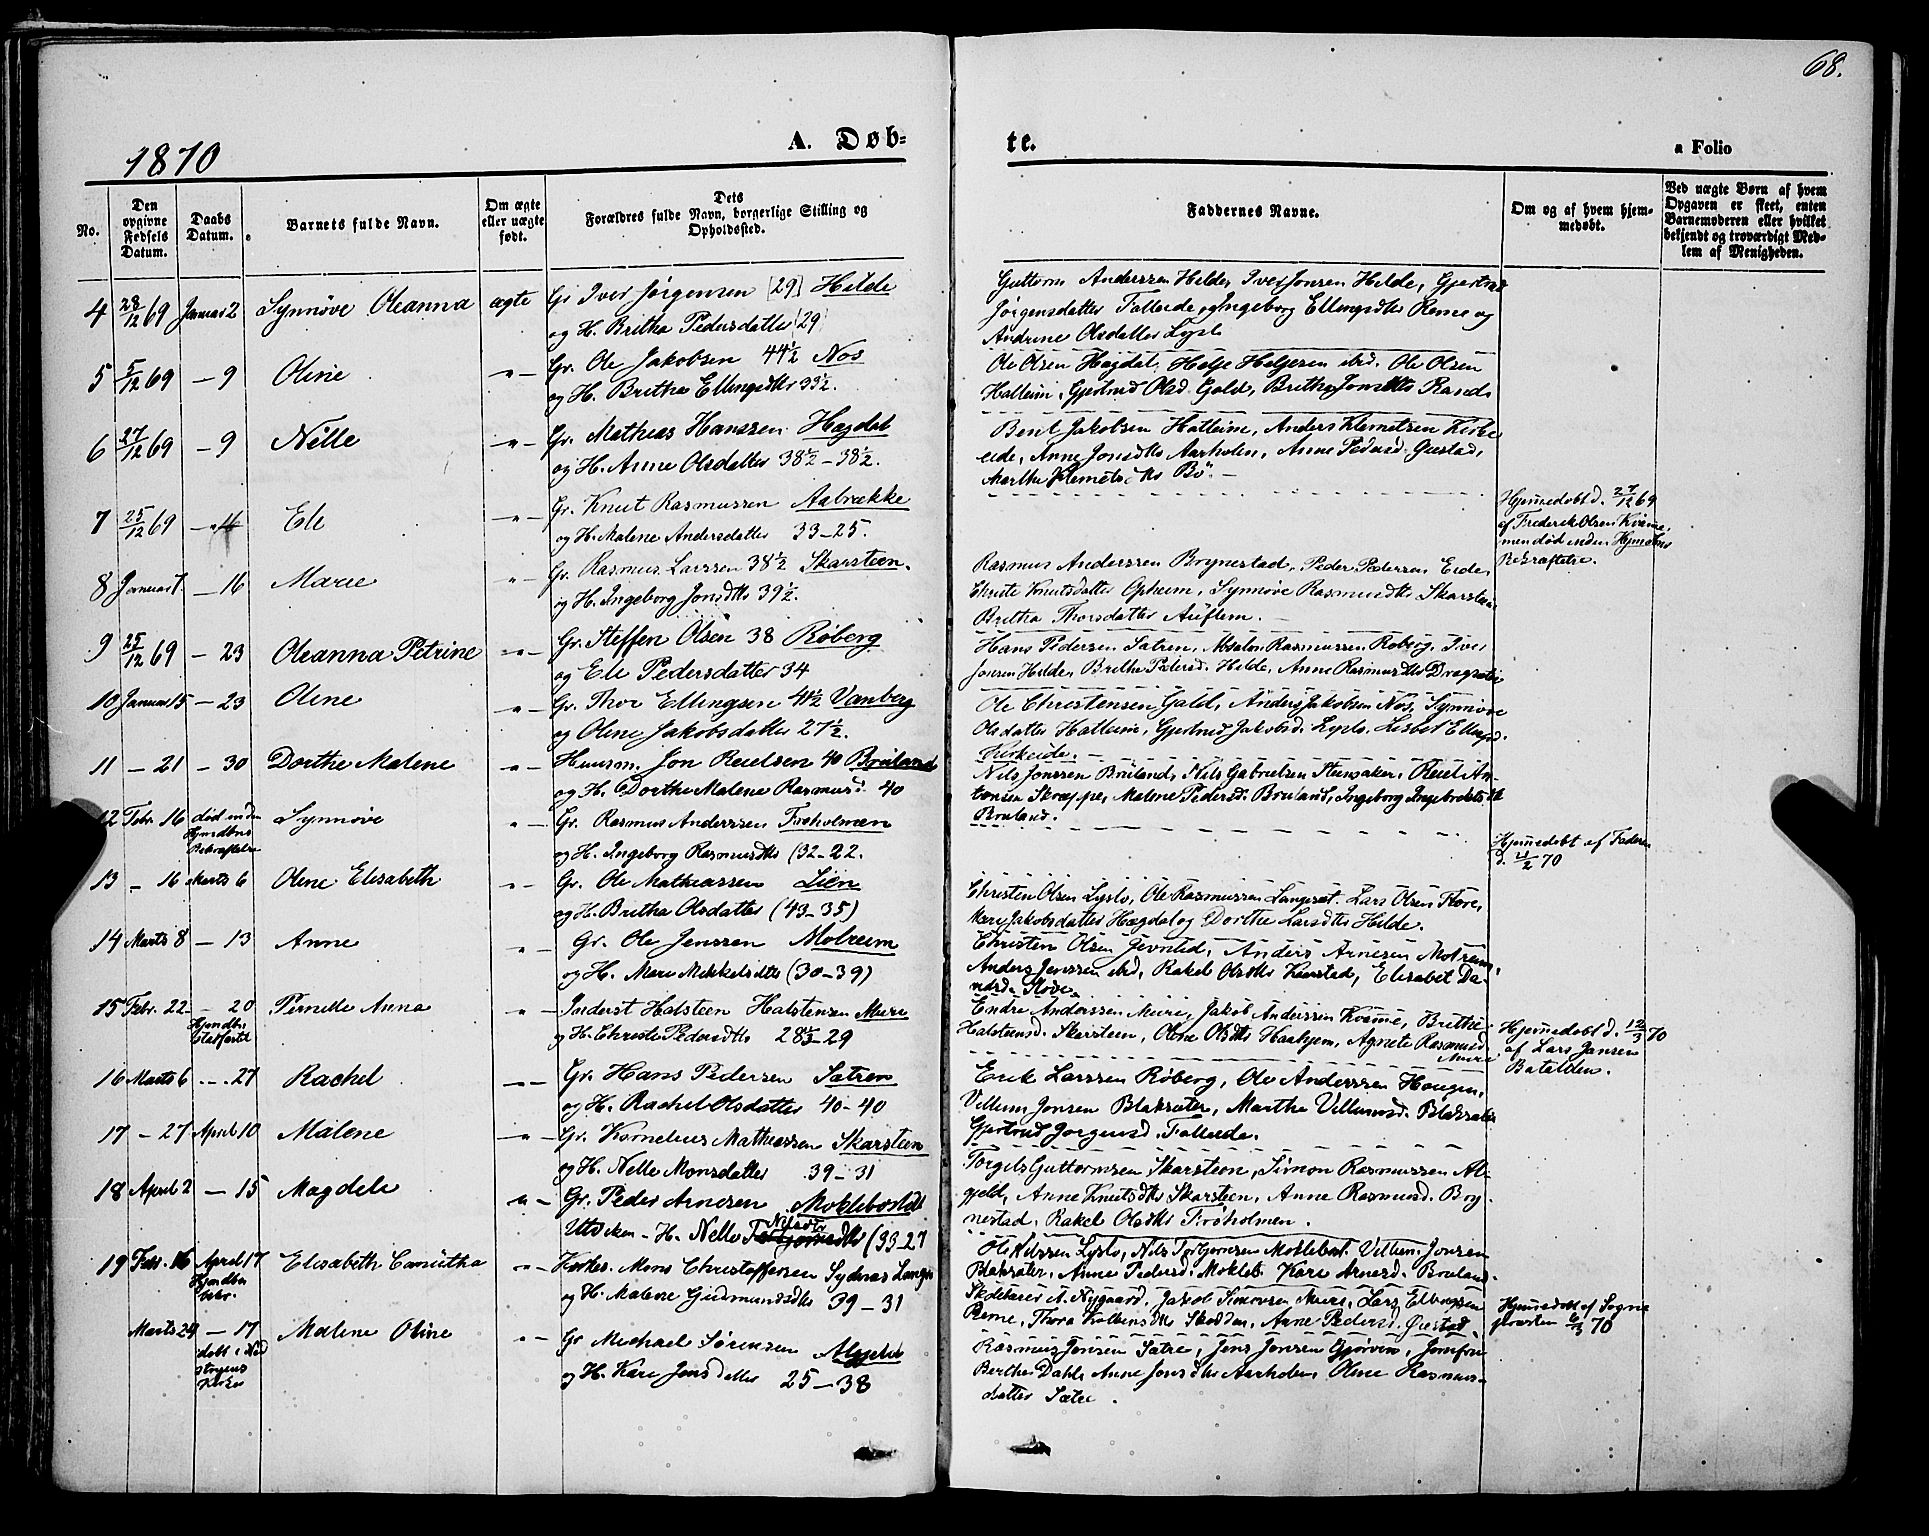 68.
1870
A. Døb-
te.
a Folio
No.
Den opgivne Fødsels Datum.
Daabs Datum.
Barnets fulde Navn.
Om ægte eller uægte født.
Dets Forældres fulde Navn, borgerlige Stilling og Opholdssted.
Faddernes Navne.
Om og af hvem hjemmedøbt.
Ved uægte Børn af hvem Opgaven er skeet, enten Barnemoderen eller hvilket bekjendt og troværdigt Medlem af Menigheden.
4 28/12 69 Januar 2 Synnøve Oleanna ægte Gr Iver Jørgensen [29] Hilde
og H. Britha Pedersdatter [29]
Guttorm Anderssen Hilde, Iver Jonsen Hilde, Gjertrud
Jørgensdatter Falleide og Ingeborg Ellingsdtr Reme og
Andrine Olsdatter Lyslo
5 5/12 69 – 9 Oline – " – Gr. Ole Jakobsen 44½ Nos
og H. Britha Ellingsdtr 39½.
Ole Olsen Hægdal, Helje Heljesen ibid. Ole Olsen
Halleim, Gjertrud Olsd. Gald, Britha Jonsdtr
6 27/12 69 – 9 Nille – " – Gr. Mathias Hanssen Hægdal
og H. Anne Olsdatter 38½ – 38½.
Bent Jakobsen Hatleim, Anders Klemetsen Kirke
eide, Anne Jonsdtr Aarholen, Anne Pedersd. Giestad,
Marthe Klemetsdtr Bø. –
7 25/12 69 Eli – " – Gr. Knut Rasmussen Aabrække
og H. Malene Andersdatter 33 – 25.
Hjemmedøbt d. 27/12 69
af Frederik Olsen Kvame,
men død inden Hjmdbns
Bekræftelse.
8 Januar 1. – 16 Marie " – Gr. Rasmus Larssen 38½ Skarsteen.
og H. Ingeborg Jonsdtr 39½.
Rasmus Anderssen Brynestad, Peder Pedersen Eide,
Christe Knutsdatter Opheim, Synnøve Rasmusdtr Skarsteen
Britha Thorsdatter Auflem. –
9 25/12 69 – 23 Oleanna Petrine – " – Gr. Steffen Olsen 38 Røberg
og Eli Pedersdatter 34
Hans Pedersen Sætren, Absalon Rasmussen Roberg, Iver
Jonsen Hilde, Brithe Pedersd. Hilde, Anne Rasmusdtr
10 Januar 15 – 23 Oline – " – Gr. Thor Ellingsen 41½ Vanberg
og Oline Jakobsdatter 27½.
Ole Christensen Gald, Anders Jakobsen Nos, Synnøve
Olsdatter Hatleim, Gjertrud Jakobsd. Lyslo, Lisbet Ellingsd.
Kirkeide. –
11 – 21 – 30 Dorthe Malene – " – Huusm. Jon Reielsen 40 Bruland
og H. Dorthe Malene Rasmusd. 40
Nils Jonssen Bruland, Nils Gabrielsen Steensaker, Reiel An-
tonsen Skreppe, Malene Pedersd. Bruland, Ingeborg Ingebretsdtr
Bruland.
12 Febr. 16 død inden Hjmdbns Bekræftelse Synnøve " – Gr. Rasmus Anderssen Frøholmen
og H. Ingeborg Rasmusdtr (32–22.
Hjemmedøbt af Faderen
13 – 16 Marts 6 Oline Elisabeth " – Gr. Ole Mathiassen Lien
og H. Britha Olsdatter (43–35)
Christen Olsen Lyslo, Ole Rasmussen Langesæt, Lars Olsen Flore,
Mari Jakobsdatter Hægdal og Dorthe Larsdtr Hilde.
14 Marts 8 – 13 Anne " – Gr. Ole Jenssen Molreim
og H. Mari Mikkelsdtr (30–39)
Christen Olsen, Anders Arnesen Molreim,
Anders Jenssen ibid, Rakel Olsdtr, Elisabet Da-
15 Febr. 22 – 20 Hjmdbn Stadfæstet Pernelle Anna " – Inderst Halsteen Halstensen Muri
og H. Christi Pedersdtr 28½–29
Endre Anderssen Muri, Jakob Anderssen Kvame, Brithe
Halsteensd. Skarsteen, Oline Olsdtr Haahjem, Agnete Rasmusd.
Muri
Hjemmedøbt d. 12/3 70
af Lars Jansen
Batalden.
16 Marts 6 – 27 Rachel – " – Gr. Hans Pedersen Sætren
og H. Rachel Olsdatter 40–40
Erik Larssen Røberg, Ole Anderssen Haugen,
Vellum Jonsen Blaksæter, Marthe Vellumsd. Blaksæter
Gjertrud Jørgensd. Falleide.
17 – 27 April 10 Malene – " – Gr. Kornelius Mathiassen Skarsteen
og H. Nelle Monsdatter 39–31
Torgils Guttormsen Skarsteen, Simon Rasmussen Al-
gjeld, Anne Knutsdtr Skarsteen, Anne Rasmusd. Bry-
nestad, Rakel Olsdtr Frøholmen.
18 April 2 – 15 Magdele " – Gr. Peder Arnesen Moklebostdt
Utviken – H. Nelle Nilsdtr (33–27
Ole Nilssen Lyslo, Nils Torbjørnsen Moklebust. Vellum Jonsen
Blaksæter, Anne Pedersd. Mokleb. Kari Arnesd. Bruland.
19 Febr. 16 April 17 Hjmdbn bekr. Elisabeth Camitha " – Kirkes. Mons Christoffersen Sydnes
og H. Malene Gudmundsdtr 39–31
Skolelærer A. Nygaard, Jakob Simonsen Muri, Lars Ellingsen
Reme, Thora Kolbensdtr Skodden, Anne Pedersd. Giestad.
Hjemmedøbt af Sogne
præsten 6/3 70
Marts 24 – 17 døbt i Ned stryens Kirke Malene Oline " – Gr Michael Sørensen
og H. Kari Jonsdatter 25–38
Rasmus Jonsen Sætre, Jens Jonsen Gjørven, Jomfru
Berthe Dahl, Anne Jonsdtr Aarholen, Oline Rasmus-
datter Sætre.